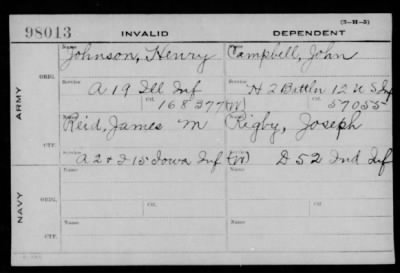 (3-H-5)
98013 INVALID DEPENDENT
Name Name
Johnson, Henry Campbell, John
ORIG.
Service Service
A 19 Ill Inf H 2 Battln 12 U S Inf
Ctf. Ctf.
168377 (W) 57055
ARMY
Name Name
Reid, James M Rigby, Joseph
CTF.
Service Service
A 2 & I 15 Iowa Inf (W) D 52 Ind Inf
NAVY
ORIG.
Name Name
CTF.
Name Name